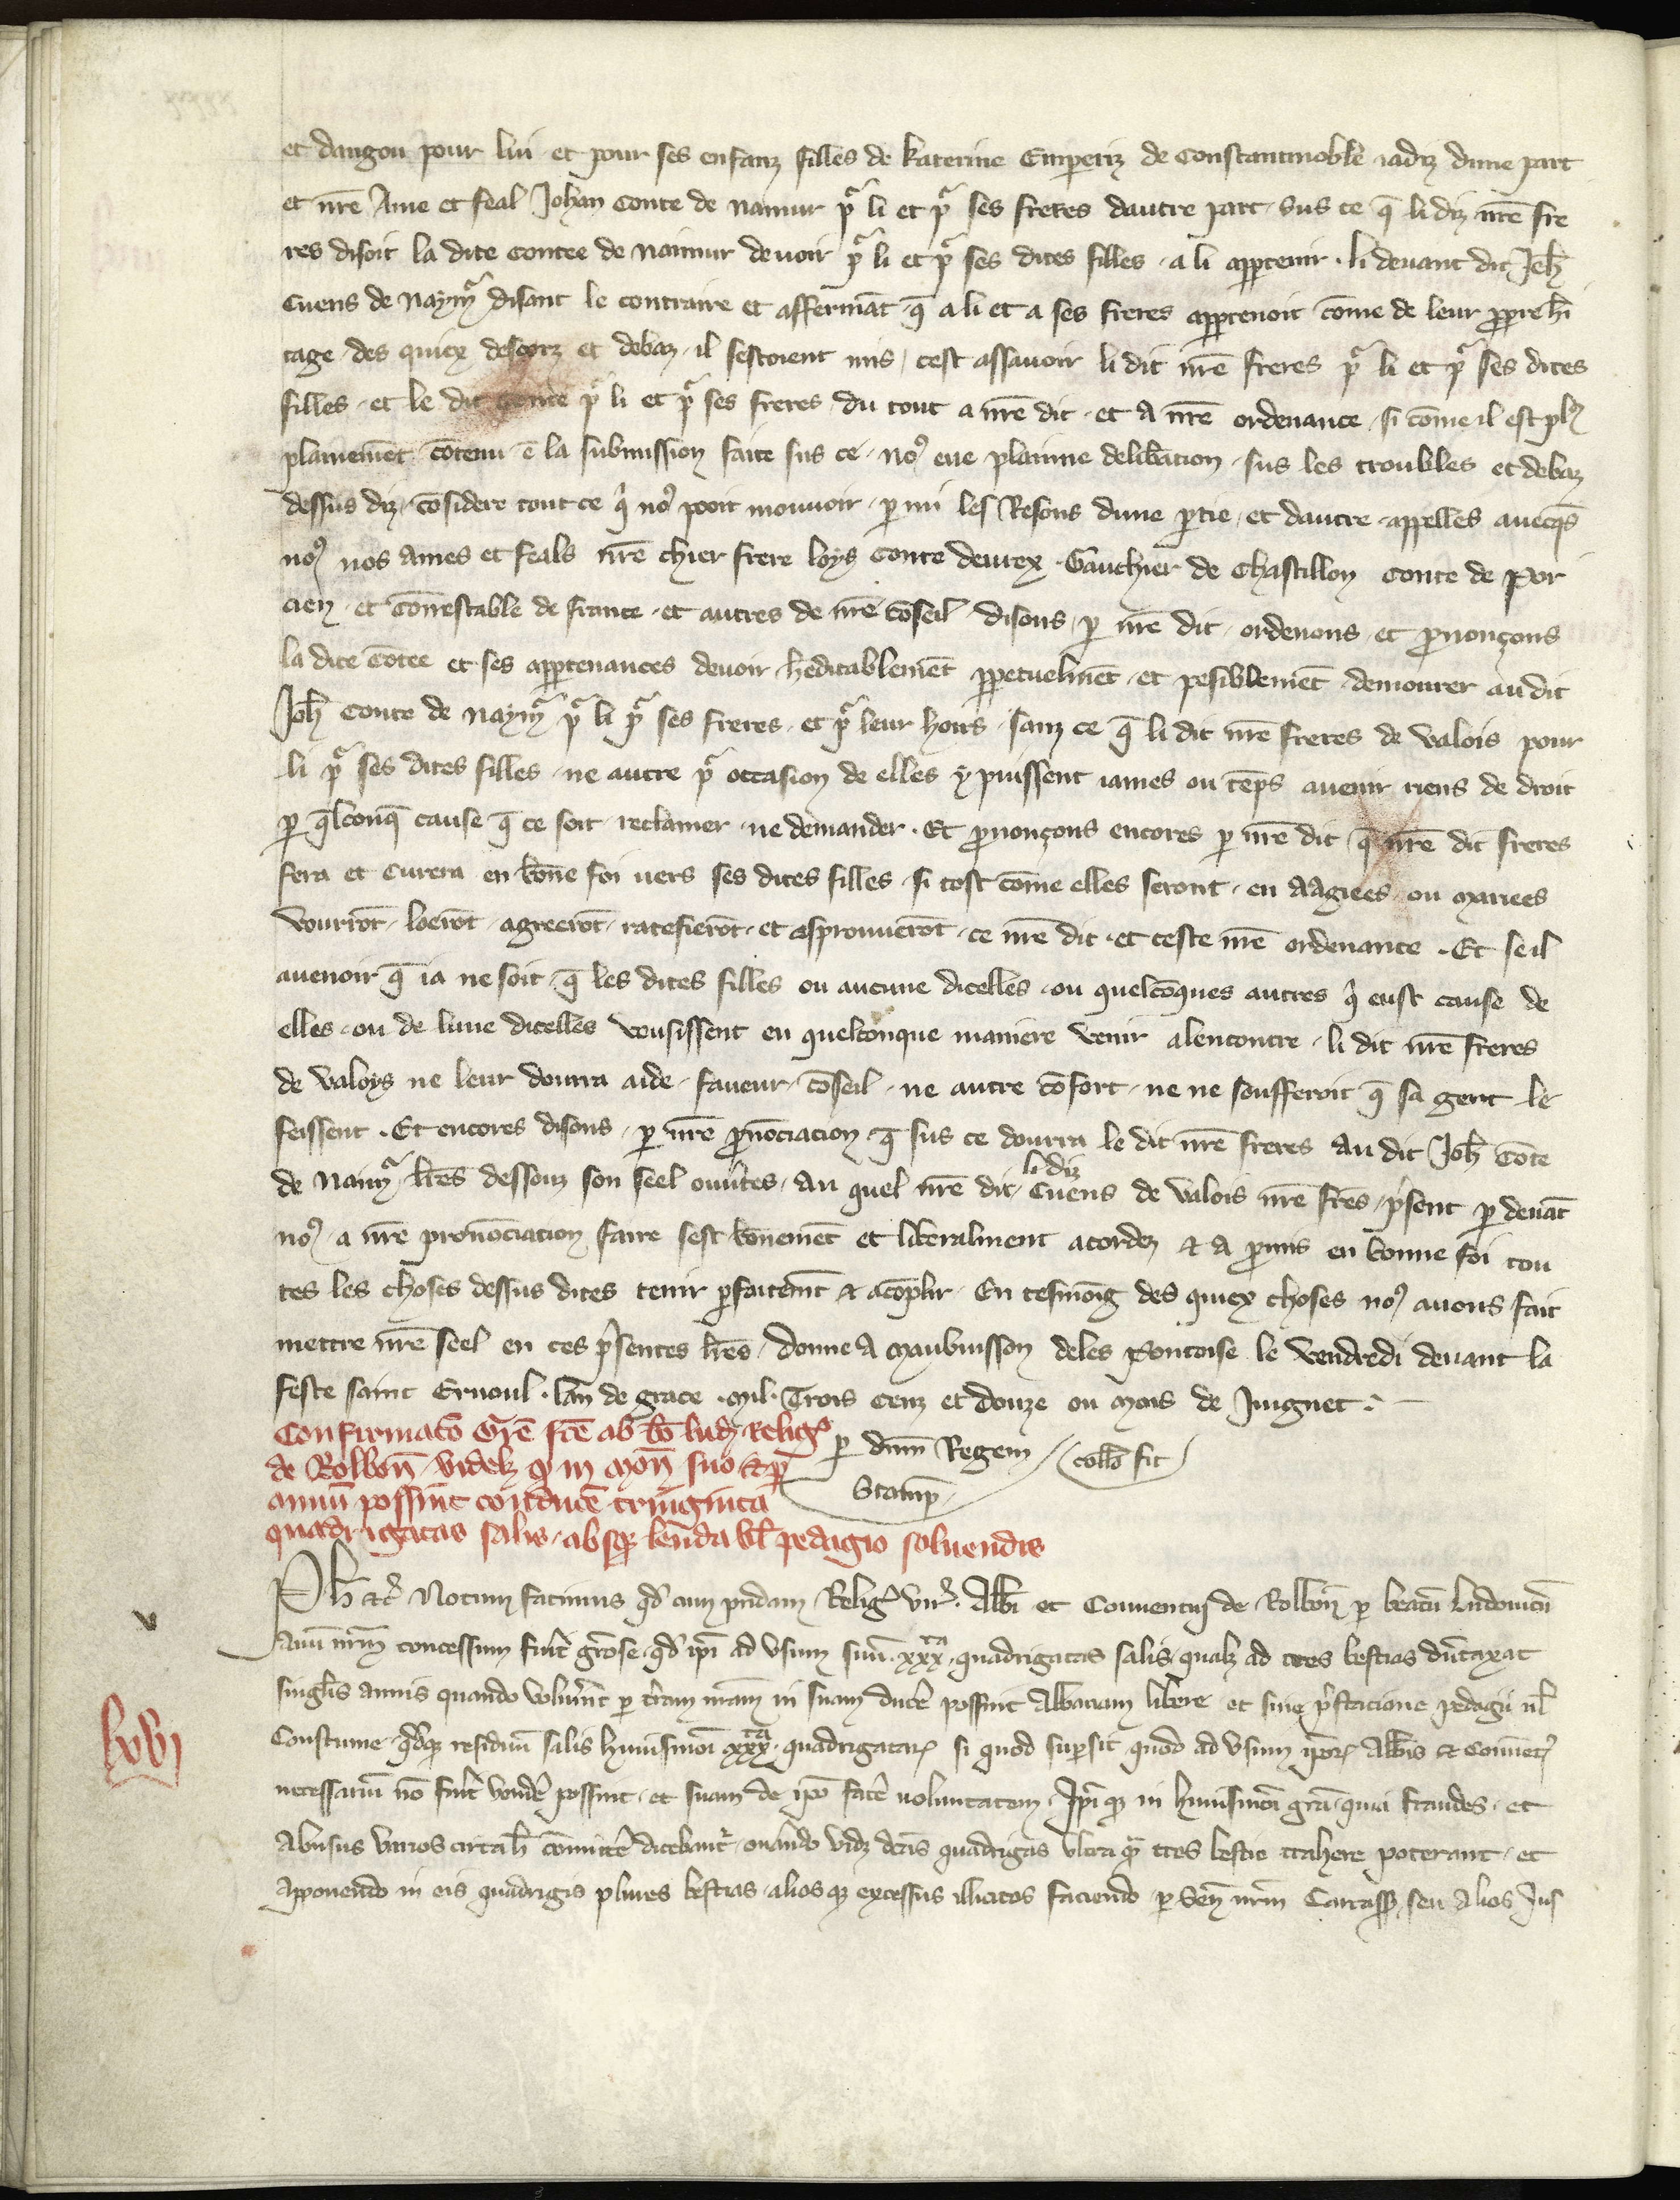 et dangou pour lui et pour ses enfanz filles de katerine Emperiz de Constantinoble iadiz dune part
et nr̄e Ame et feal Johan Conte de namur pͬ li et pͬ ses freres dautre part. sus ce q̄ li diz nr̄e fre
res disoit la dite Contee de Namur deuoir pͬ li et pͬ ses dites filles. a li apꝑtenir. li deuant dit Joh̄
Cuens de Naymͬ disant le contraire et affermāt q̄ a li et a ses freres apꝑtenoit cōme de leur ꝓpre hͥ
tage. des quiex descorz et debaz. il sestoient mis, cest assauoir li dit nr̄e freres pͬ li et pͬ ses dites
filles. et le dit Conte pͬ li et pͬ ses freres du tout a nr̄e dit. et a nr̄e ordenance. si cōme il est plꝰ
plainemēt cōtenu ē la submission faite sus ce. noꝰ eue plainne delib̄acion. sus les troubles et debaz
dessus diz. cōsidere tout ce qͥ noꝰ pooit mouuoir. ꝑ mi les Resons dune ꝑtie, et dautre. appelles auecq̄s
noꝰ nos Ames et feals nr̄e chier frere loys Conte deurex. Gauchier de Chastillon Conte de Por
cien. et Cōnestable de france. et autres de nr̄e cōseil disons, ꝑ nr̄e dit, ordenons, et ꝓnonçons
la dite Cōtee et ses apꝑtenances deuoir h̄editablemēt ꝑpetuelmēt. et pesiblemēt demourer au dit
Joh̄ Conte de Naymͬ pͬ li pͬ ses freres. et pͬ leur hoirs. sanz ce q̄ li dit nr̄e freres de Valois pour
li pͬ ses dites filles. ne autre pͬ occasion de elles y puissent iames ou tēps auenir riens de droit
ꝑ q̄lconq̄ cause q̄ ce soit reclamer. ne demander. Et ꝓnonçons encores ꝑ nr̄e dit q̄ nr̄e dit freres
fera et Curera en bōne foi uers ses dites filles. si tost cōme elles seront. en aagiees ou mariees
vourrōt. loerōt. agreerōt. ratefierōt. et aspronuerōt. ce nr̄e dit. et ceste nr̄e ordenance. Et se il
auenoit q̄ ia ne soit. q̄ les dites filles ou aucune dicelles. ou quelcōques autres qͥ eust cause de
elles. ou de lune dicelles vousissent en quelconque maniere venir alencontre. li dit nr̄e freres
de Valoys ne leur donra aide. faueur. cōseil. ne autre cōfort. ne ne soufferoit q̄ sa gent le
feissent. Et encores disons. ꝑ nr̄e ꝓnōciacion. q̄ sus ce donra le dit nr̄e freres au dit Joh̄ Cōte
de Naimͬ lr̄es dessouz son seel ouūtes. Au quel nr̄e dit, li diz Cuens de Valois nr̄e fr̄es. pͥsent ꝑ deuāt
noꝰ a nr̄e pronōciacion faire sest bōnemēt et liberalment acordez & a ꝓmis en bonne foi tou
tes les choses dessus dites tenir ꝑfaitemt̄ & acōplir. En tesmoīg des quiex choses noꝰ auons fait
mettre nr̄e seel en ces pͥsentes lr̄es. donne a Maubuisson deles Pontoise le vendredi deuant la
feste saint Ernoul. lan de grace. Mil. Trois Cenz et Douze ou mois de Juignet.
Confirmatō Gr̄e fc̄e ab bō lud. Religꝰ
de Bolbon̄. videlꝫ q̄ in Mon̄ suo & ꝑ
annū possint conducē triginta
quadrigatas salis. absqꝫ leuda vl̄ pedagio soluendis
ꝑ dn̄m Regem
coll̄o fit
Stamp̄
Ph̄ &c̄ Notum facimus qd̄ cum pridem Religꝰ virͥ. Abb̄i et Conuentuj de Bolbon̄ ꝑ beatū Ludouicū
Auū nr̄m concessum fuīt grōse. qd̄ ip̄i ad vsum suū. xxxᵃ. quadrigatas salis. qualꝫ ad tres bestias dūtaxat
singl̄is annis quando voluīnt ꝑ tr̄am nr̄am in suam ducē possint Abbaciam libere et sine pͥstacione pedagii ul̄
Coustume. qd̄qꝫ residuū salis huiusmodi xxxᵃ. quadrigataꝝ si quod suꝑsit quod ad vsum ip̄oꝝ Abb̄is & Conuētꝰ
necessariū nō fuīt vendē possint. et suam de ip̄o facē uoluntatem. Ip̄iqꝫ in huiusmōi gr̄a. quia fraudes. et
Abusus varios circa h̄ cōmittē dicebant̄. onando vidꝫ dc̄as quadrigas vltra qͣ tres bestie trahere poterant. et
Apponendo in eis quadrigis plures bestias. aliosqꝫ excessus illicitos faciendo. ꝑ Sen̄ nr̄m Carcass̄. seu Alios Jus
lxvj